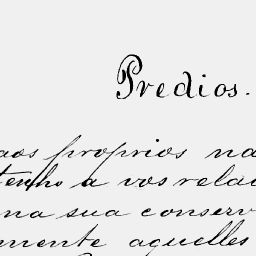 Predios.
aos proprios na
tenho a vos rela
na sua conserv
mente aquelles